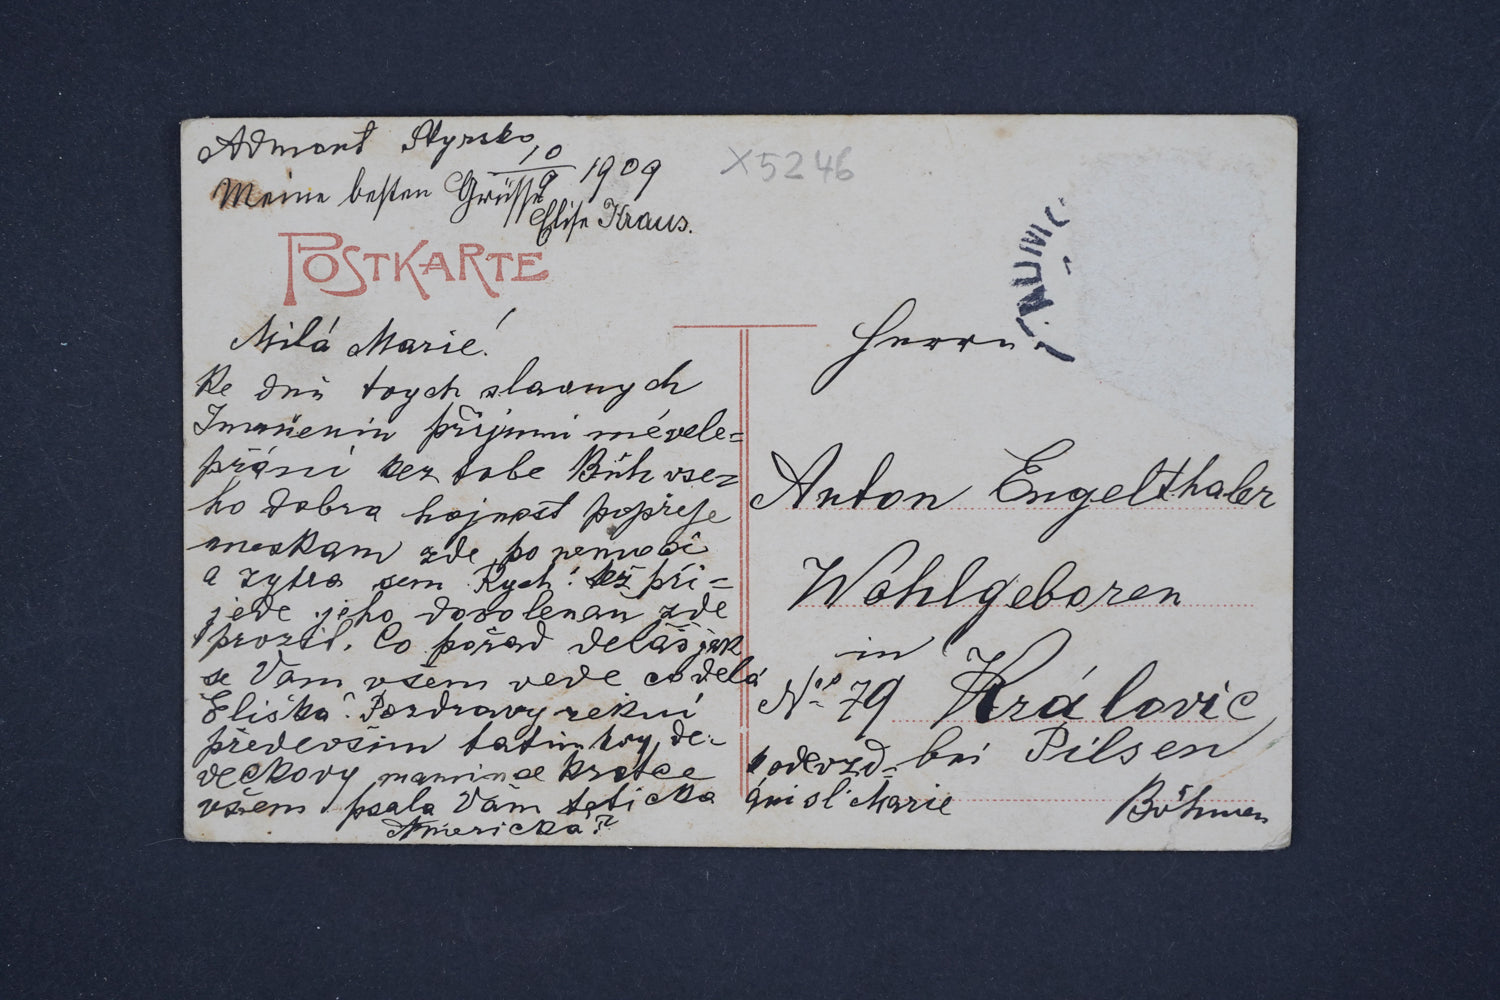 Admont Styrsko
10/9 1909
Meine besten Grüsse
Elise Kraus.
X5246
POSTKARTE
Milá Marie!
Ke dnu tvych slavnych
Jmenenin přijmi mé vele=
přání kez tobe Bůh vse=
ho dobra hojnost popřeje
meskam zde po nemoci
a zytra sem Rych: též při=
jede jeho dovolenau zde
prozit. Co pořad delaš jak
se Vam všem vede co dela
Eliška? Pozdravy rekni
předevsim tatinkovy, de=
deckovy mamince kratce
všem psala Vám teticka
Americká?
Herrn
Anton Engelthaler
Wohlgeboren
in
No 79 Královic
bei Pilsen
odevzd=
ání sl. Marie
Böhmen